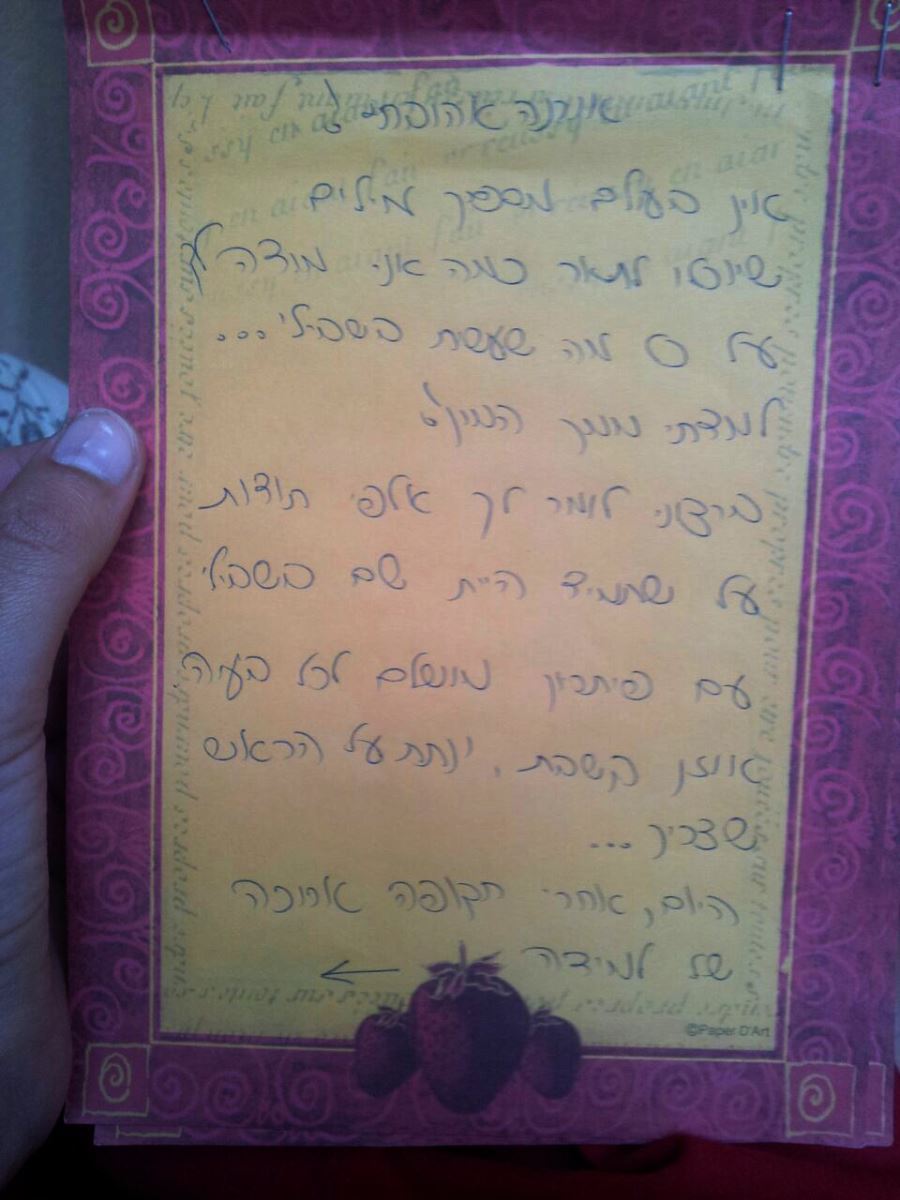 אהובתי!
אין בעולם מספיק מילים
שיוכלו לתאר כמה אני מודה לך
על כל מה שעשית בשבילי...
למדתי ממך המון!
ברצוני לומר לך אלפי תודות
על שתמיד היית שם בשבילי
עם פיתרון מושלם לכל בעיה
אוזן קשבת, ונתת על הראש
כשצריך...
היום, אחרי תקופה ארוכה
של למידה ←
©Paper D'Art